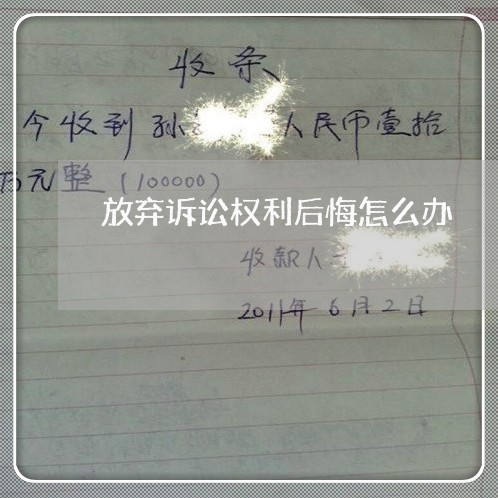 收条
今收到孙 人民币壹拾
万元整（100000）
放弃诉讼权利后悔怎么办
收款人
2011年6月2日